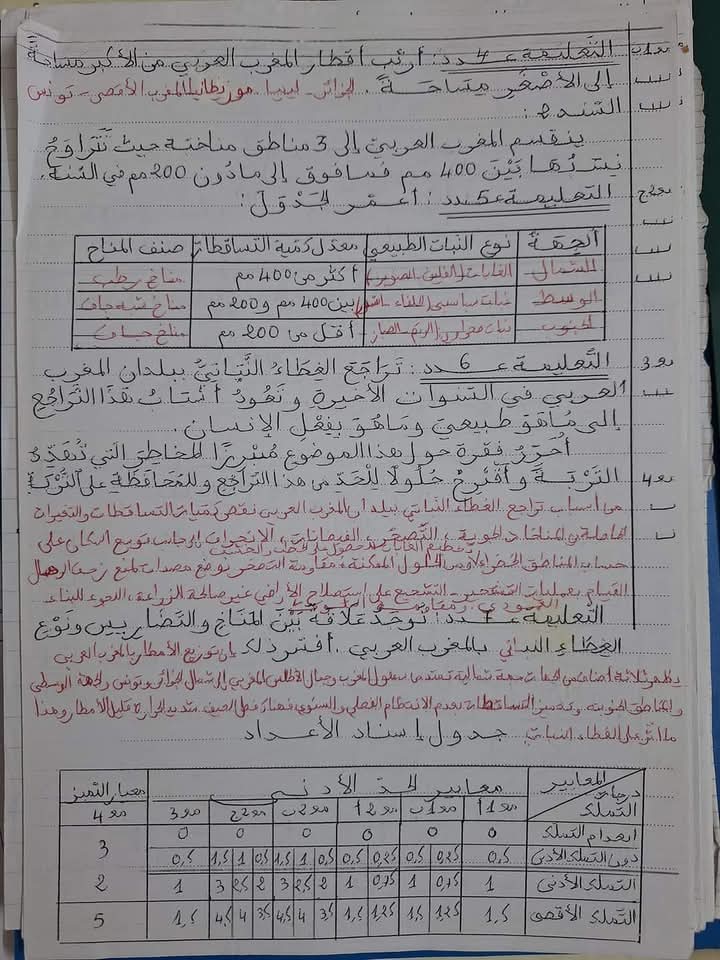 مع1ب التعليمة عـ4ـدد: أرتب أقطار المغرب العربي من الأكبر مساحة
إلى الأصغر مساحة. الجزائر - ليبيا - موريطانيا المغرب الأقصى - تونس
السند 2:
ينقسم المغرب العربي إلى 3 مناطق مناخية حيث تتراوح
نسبها بين 400 مم فما فوق إلى ما دون 200 مم في السنة.
مع2ج التعليمة عـ5ـدد: أعمر الجدول:
الجهة نوع النبات الطبيعي معدل كمية التساقطات صنف المناخ
الشمال الغابات (الفلين - الصنوبر) أكثر من 400 مم مناخ رطب
الوسط نبات سباسبي (الحلفاء - ) بين 400 مم و 200 مم مناخ شبه جاف
الجنوب نبات صحراوي (الرتم - الصبار) أقل من 200 مم مناخ جاف
مع3 التعليمة عـ6ـدد: تراجع الغطاء النباتي ببلدان المغرب
العربي في السنوات الأخيرة و تعود أسباب هذا التراجع
إلى ما هو طبيعي وما هو بفعل الإنسان.
أحرر فقرة حول هذا الموضوع مبرزا المخاطر التي تهدد
مع4 التربة و أقترح حلولا للحد من هذا التراجع وللمحافظة على التربة
من أسباب تراجع الغطاء النباتي ببلدان المغرب العربي نقص كميات التساقطات والتغيرات
الحاصلة في المناخ الجوية، التصحر، الفيضانات، الانجراف إلى جانب توسع السكان على
الغابات للحصول على الحطب والخشب
حساب المناطق الخضراء ومن الحلول الممكنة: مقاومة التصحر بوضع مصدات لمنع زحف الرمال
القيام بعمليات التشجير - التشجيع على استصلاح الأراضي غير صالحة الزراعة، اللجوء للبناء
العمودي، ومقاومة
التعليمة عـ7ـدد: توجد علاقة بين المناخ والتضاريس ونوع
الغطاء النباتي بالمغرب العربي. أفسر ذلك إن توزيع الأمطار بالمغرب العربي
ثلاثة أصناف من الجهات جهة شمالية تمتد من سهول المغرب وجبال الأطلس المغربي إلى شمال الجزائر وتونس والجهة الوسطى
والمناطق الجنوبية وتتميز التساقطات بعدم الانتظام الفصلي والسنوي فهناك فصل الصيف شديد الحرارة قليل الأمطار وهذا
ما أثر على الغطاء النباتي
جدول إسناد الأعداد
المعايير درجات التملك معايير الحد الأدنى معيار التميز
مع1أ مع1ب مع2أ مع2ب مع2ج مع3 مع4
انعدام التملك 0 0 0 0 0 0
دون التملك الأدنى 0,5 0,25 0,5 0,25 0,5 0,5 1 1,5 0,5 1 1,5 0,5 3
التملك الأدنى 1 0,75 1 0,75 1 2 2,5 3 2 2,5 3 1 2
التملك الأقصى 1,5 1,25 1,5 1,25 1,5 3,5 4 4,5 3,5 4 4,5 1,5 5